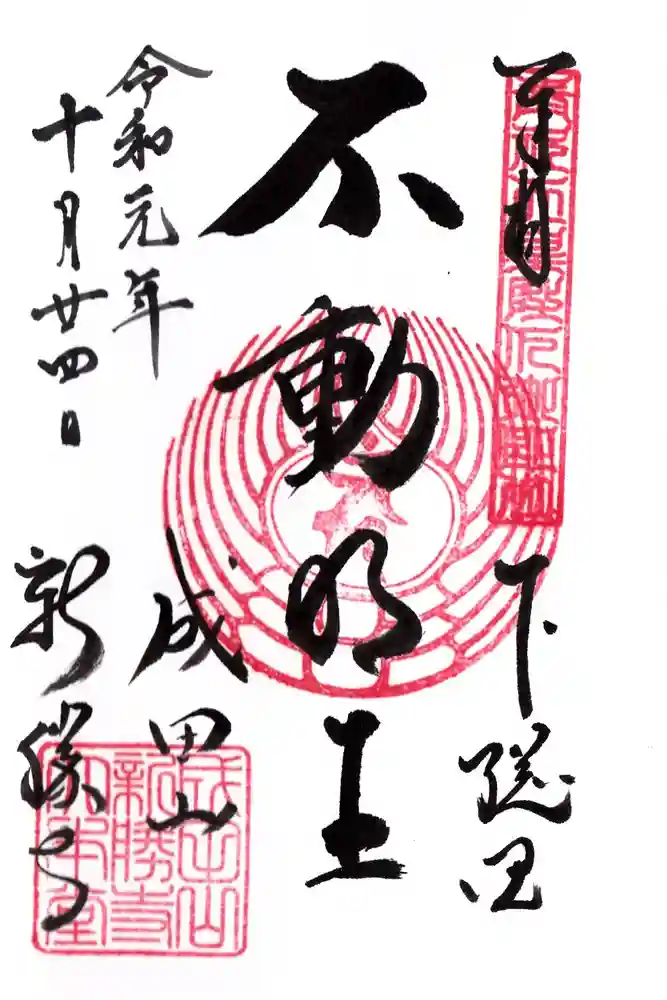 奉拝
下総国
不動明王
成田山
新勝寺
令和元年
十月廿四日
成田山
新勝寺